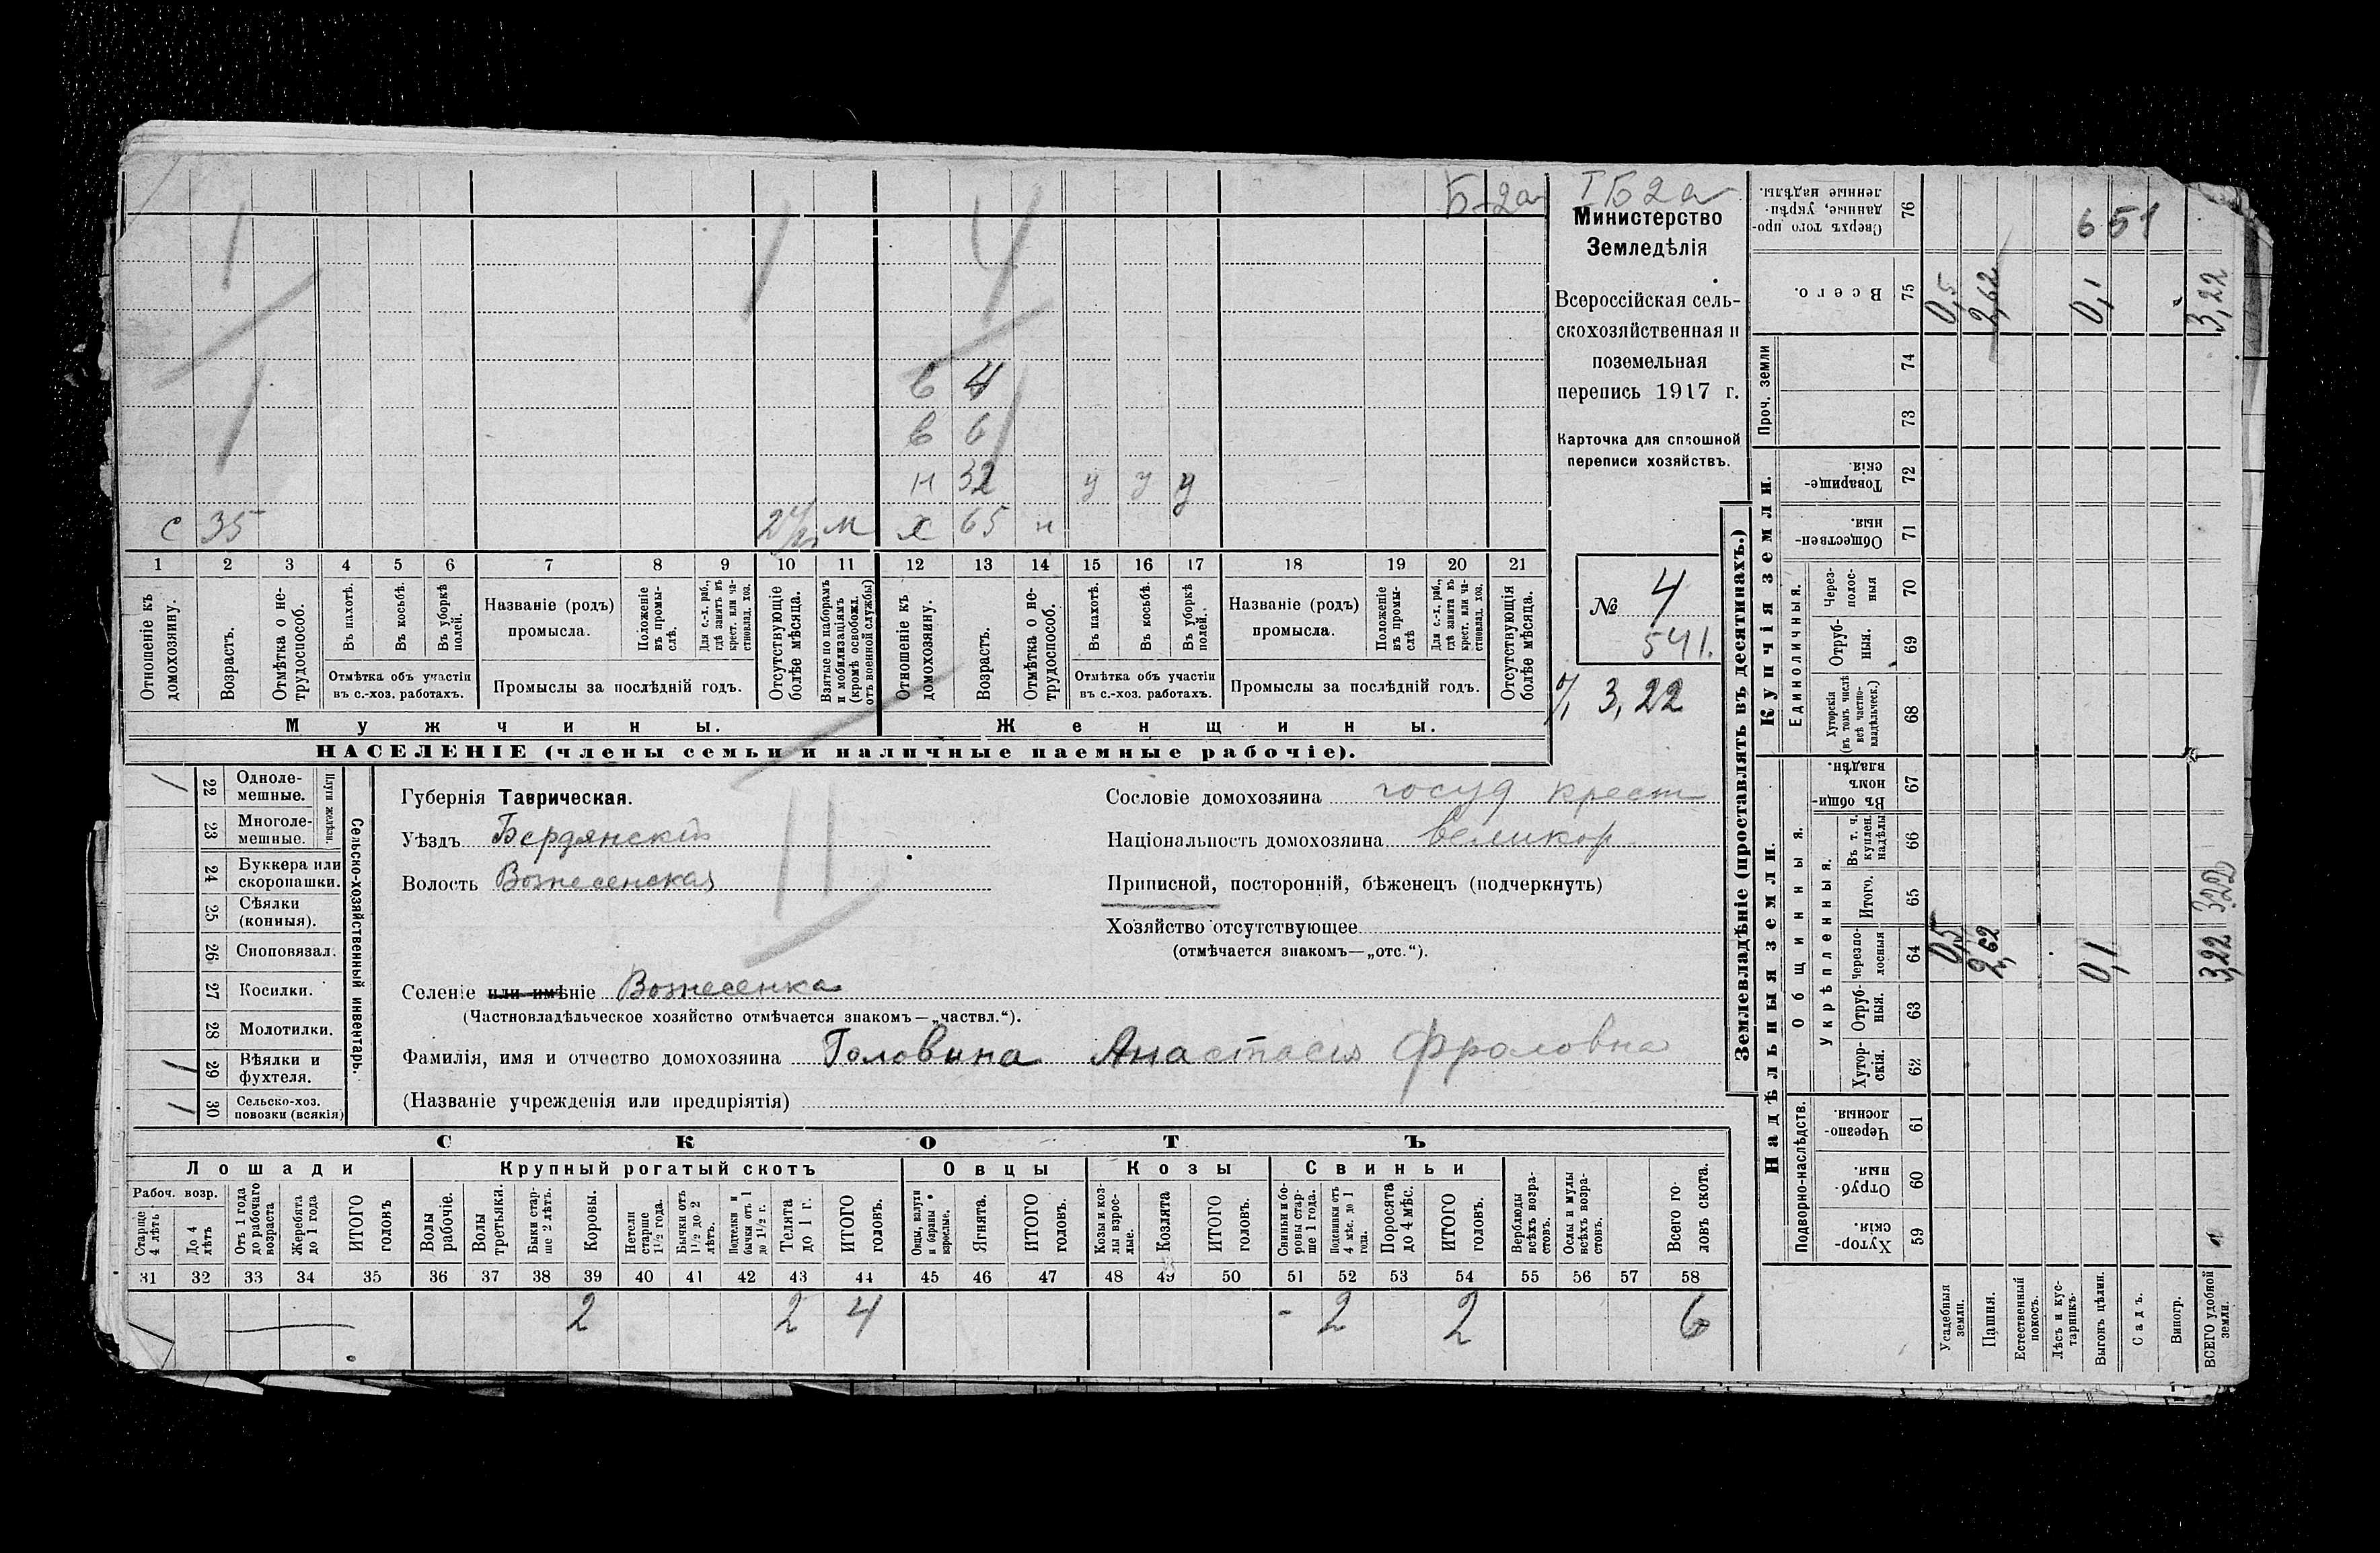 Б-2а
I Б 2 а
Министерство
Земледѣлія
Всероссійская сель-
скохозяйственная и
поземельная
перепись 1917 г.
Карточка для сплошной
переписи хозяйствъ.
№ 4
541.
3,22
в 4
в 6
н 32 у у у
с 35 м х 65 н
1 2 3 4 5 6 7 8 9 10 11 12 13 14 15 16 17 18 19 20 21
Отношеніе къ домохозяину.
Возрастъ.
Отмѣтка о не-трудоспособ.
Въ пахотѣ.
Въ косьбѣ.
Въ уборкѣ полей.
Отмѣтка объ участіи
въ с.-хоз. работахъ.
Названіе (родъ)
промысла.
Положеніе въ промы-слѣ.
Для с.-х. раб., гдѣ занятъ въ крест. или ча-стновлад. хоз.
Промыслы за послѣдній годъ.
Отсутствующіе болѣе мѣсяца.
Взятые по наборамъ и мобилизаціямъ (кромѣ освобожд. отъ военной службы)
Отношеніе къ домохозяину.
Возрастъ.
Отмѣтка о не-трудоспособ.
Въ пахотѣ.
Въ косьбѣ.
Въ уборкѣ полей.
Отмѣтка объ участіи
въ с.-хоз. работахъ.
Названіе (родъ)
промысла.
Положеніе въ промы-слѣ
Для с.-х. раб., гдѣ занята въ крест. или ча-стновлад. хоз.
Промыслы за послѣдній годъ.
Отсутствующія болѣе мѣсяца.
Мужчины.
Женщины.
НАСЕЛЕНІЕ (члены семьи и наличные наемные рабочіе).
22 Одноле-мешные.
23 Многоле-мешные.
Плуги желѣзн.
24 Буккера или скоропашки.
25 Сѣялки (конныя).
26 Сноповязал.
27 Косилки.
28 Молотилки.
29 Вѣялки и фухтеля.
30 Сельско-хоз. повозки (всякія)
Сельско-хозяйственный инвентарь.
Губернія Таврическая.
Уѣздъ Бердянскій
Волость Вознесенская
Сословіе домохозяина госуд крест
Національность домохозяина великор
Приписной, посторонній, бѣженецъ (подчеркнуть)
Хозяйство отсутствующее
(отмѣчается знакомъ—„отс.“).
Селеніе или имѣніе Вознесенка
(Частновладѣльческое хозяйство отмѣчается знакомъ—„частвл.“).
Фамилія, имя и отчество домохозяина Головина Анастасія Фроловна
(Названіе учрежденія или предпріятія)
СКОТЪ
Лошади
Крупный рогатый скотъ
Овцы
Козы
Свиньи
Рабоч. возр.
Старше 4 лѣтъ
До 4 лѣтъ
Отъ 1 года до рабочаго возраста
Жеребята до 1 года
ИТОГО головъ
Волы рабочіе.
Волы третьяки.
Быки стар-ше 2 лѣтъ.
Коровы.
Нетели старше 1½ года.
Бычки отъ 1½ до 2 лѣтъ.
Подтелки и бычки отъ 1 до 1½ г.
Телята до 1 г.
ИТОГО головъ.
Овцы, валухи и бараны взрослые.
Ягнята.
ИТОГО головъ.
Козы и коз-лы взрос-лые.
Козлята
ИТОГО головъ.
Свиньи и бо-ровы стар-ше 1 года.
Подсвинки отъ 4 мѣс. до 1 года.
Поросята до 4 мѣс.
ИТОГО головъ.
Верблюды всѣхъ возра-стовъ.
Ослы и мулы всѣхъ возра-стовъ.
Всего го-ловъ скота.
31 32 33 34 35 36 37 38 39 40 41 42 43 44 45 46 47 48 49 50 51 52 53 54 55 56 57 58
2 2 4 - 2 2 6
Землевладѣніе (проставлять въ десятинахъ.)
Надѣльныя земли.
Купчія земли.
Проч. земли
Сверхъ того про-данные, укрѣп-ленные надѣлы. 76 651
Всего. 75 0,5 2,62 0,1 3,22
74
73
Товарище-скія. 72
Обществен-ныя. 71
Единоличныя.
Через-полос-ныя 70
Отруб-ныя. 69
Хуторскія (въ томъ числѣ всѣ частно-владѣльческ.) 68
Общинныя.
Въ общин-номъ владѣн. 67
Укрѣпленныя.
Въ т. ч. куплен. надѣлы 66
Итого. 65 3,22
Черезпо-лосныя 64 0,5 2,62 0,1 3,22
Отруб-ныя. 63
Хутор-скія. 62
Подворно-наслѣдств.
Черезпо-лосныя. 61
Отруб-ныя. 60
Хутор-скія. 59
Усадебныя земли.
Пашня.
Естественный покосъ.
Лѣсъ и кус-тарникъ.
Выгонъ цѣлин.
Садъ.
Виногр.
ВСЕГО удобной земли.